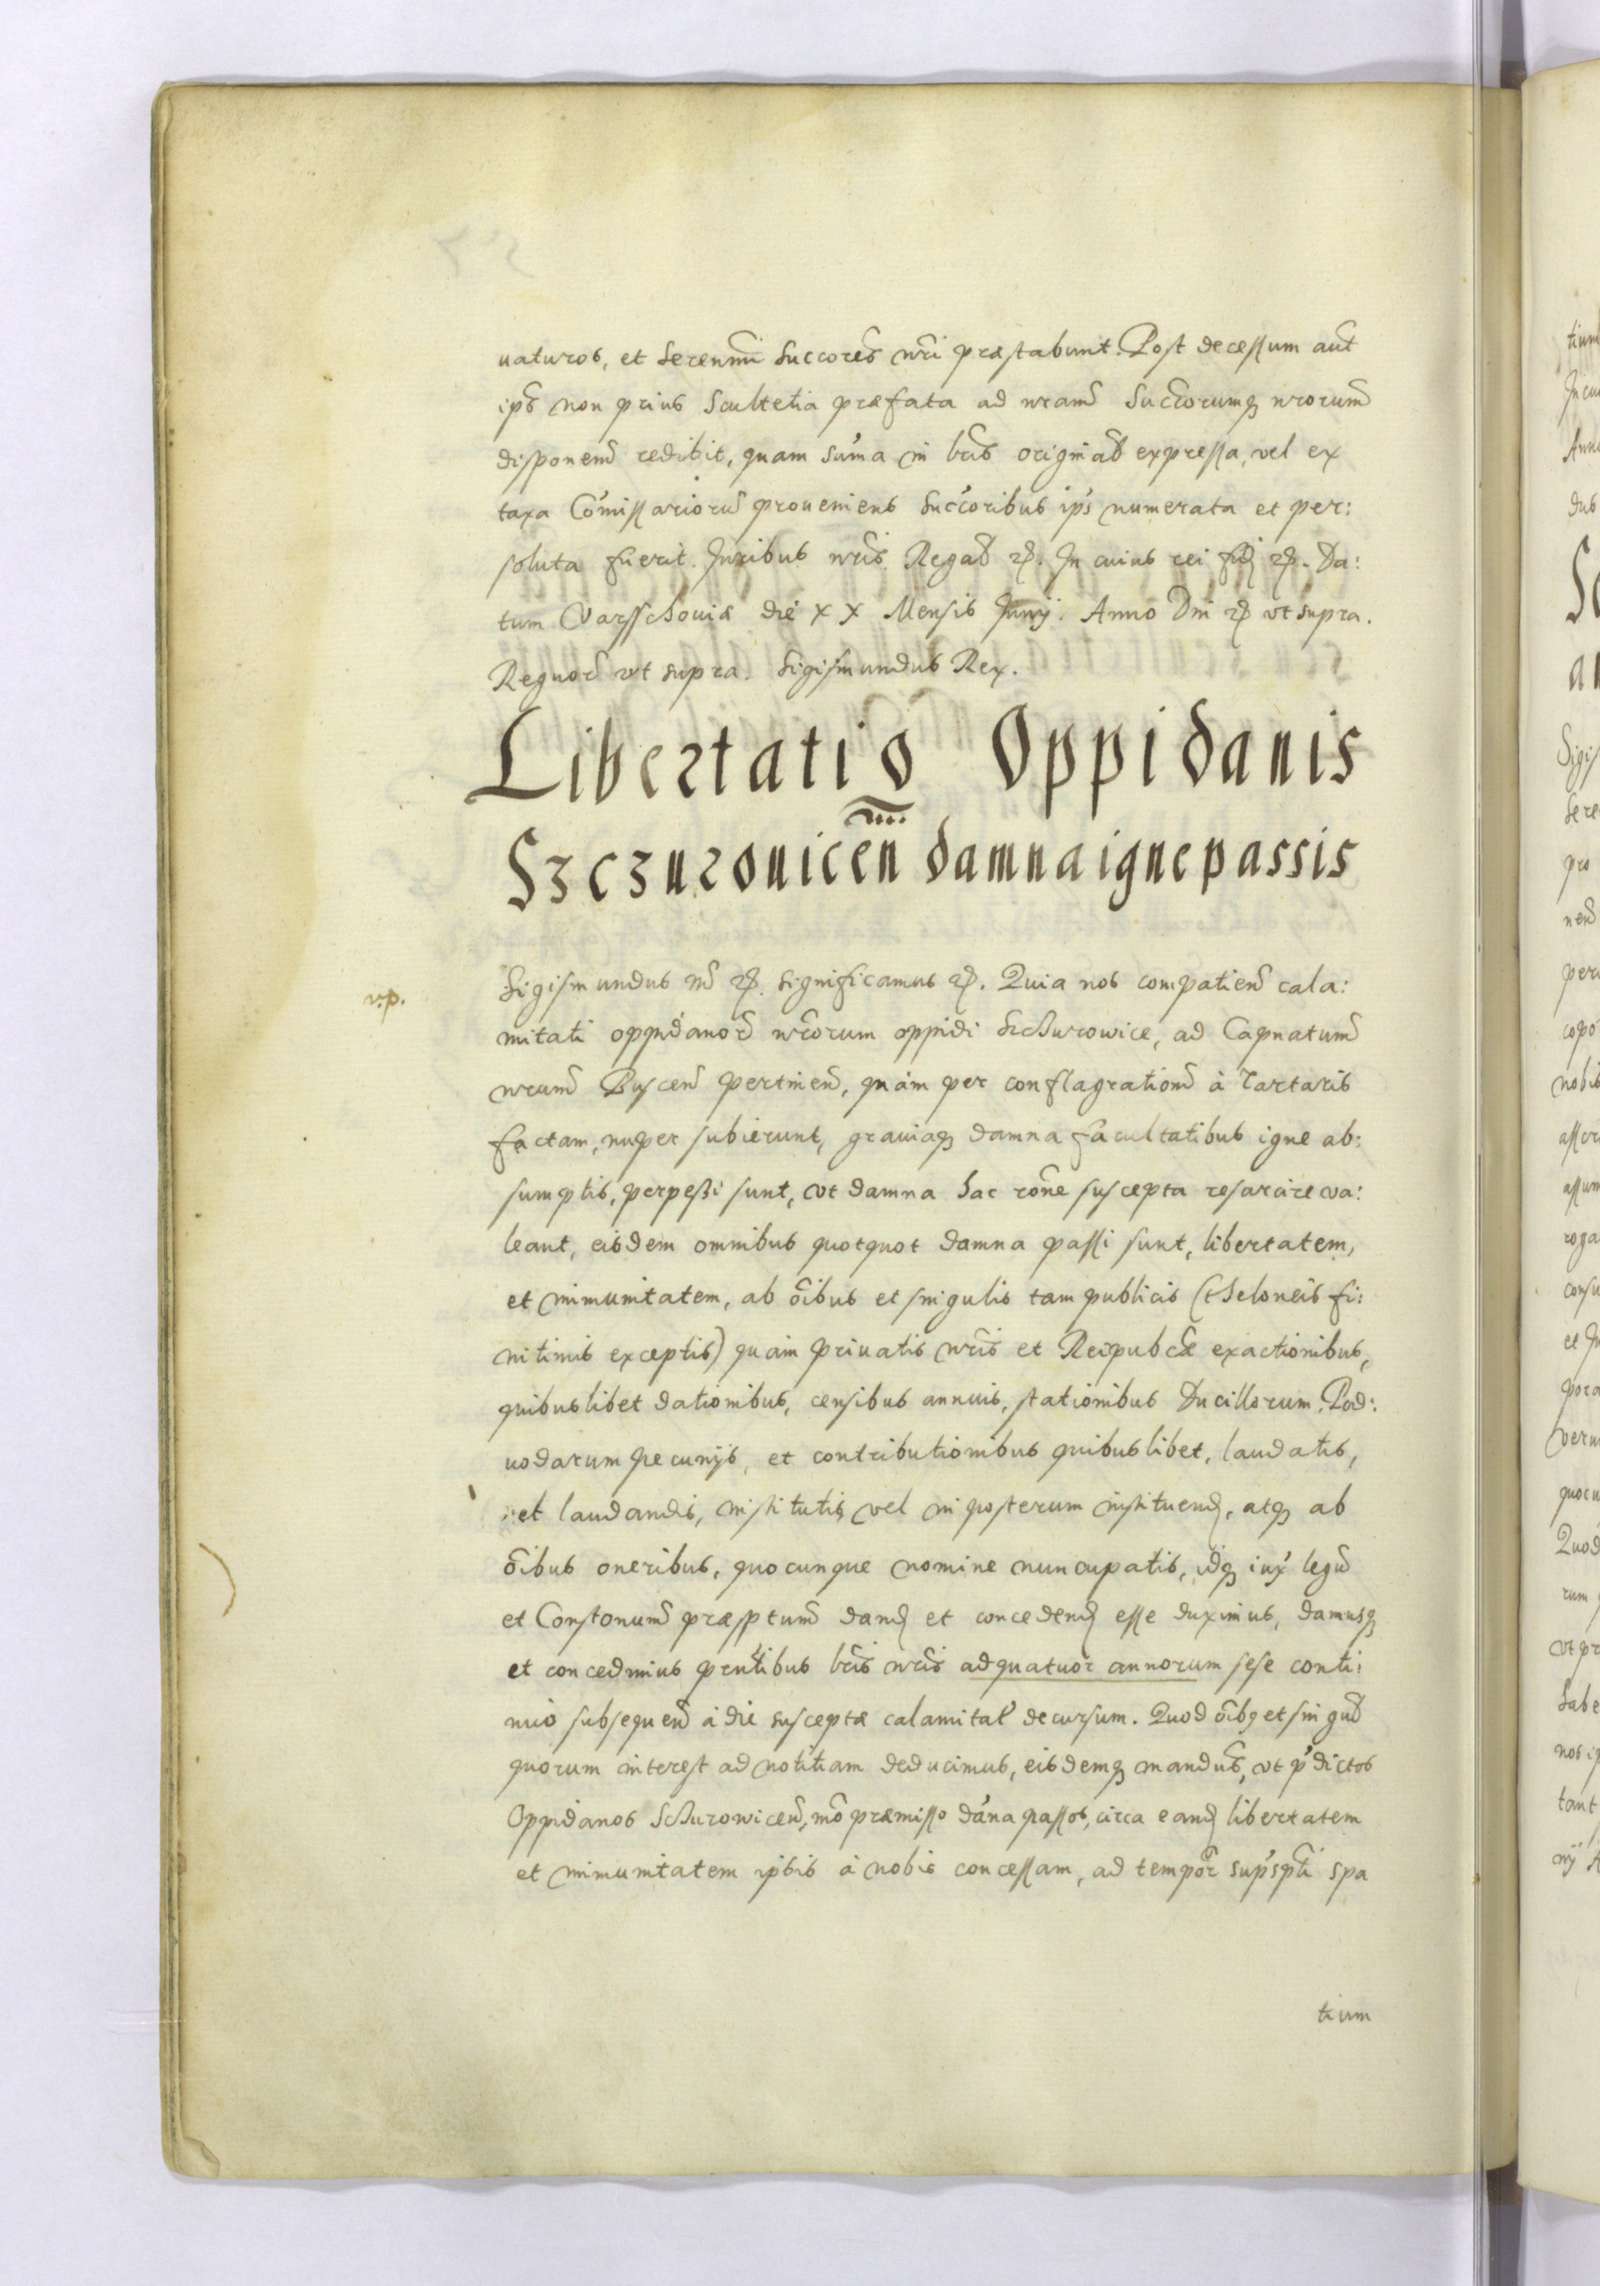 uaturos, et Serenmi Succores nri præstabunt. Post decessum aut
ips non prius Scultetia præfata ad nram Succorumq nrorum
disponem redibit, quam suma in lris originab expressa, vel ex
taxa Comissariorum proueniens Succoribus ips numerata et per:
soluta fuerit. Juribus nris Regab etc. In cuius rei fidem etc. Da:
tum Varsschouiæ die XX Mensis Junij. Anno Dni etc vt supra.
Regnor vt supra. Sigismundus Rex.
Libertatio Oppidanis
Szczurouicen damna igne passis
v.p.
Sigismundus etc. significamus etc. Quia nos compatien cala:
mitati oppidanor nrorum oppidi Schurowice, ad Capnatum
nrum Buscen pertinen, quam per conflagrationem à Tartaris
factam, nuper subierunt, grauiaq damna facultatibus igne ab:
sumptis, perpessi sunt, vt damna hac rone suscepta resarcire va:
leant, eisdem omnibus quotquot damna passi sunt, libertatem,
et immunitatem, ab oibus et singulis tam publicis (theloneis fi:
nitimis exceptis) quam priuatis nris et Reipubcæ exactionibus,
quibuslibet dationibus, censibus annuis, stationibus Ducillorum, Pod:
uodarum pecunijs, et contributionibus quibuslibet, laudatis,
et laudandis, institutis vel in posterum instituend, atq ab
oibus oneribus, quocunque nomine nuncupatis, idq iux legum
et Constonum præsptum dand et concedend esse duximus, damusq
et concedimus pntibus lris nris ad quatuor annorum sese conti:
nuo subsequen à die susceptæ calamitat decursum. Quod oibq et singub
quorum interest ad notitiam deducimus, eisdemq mandus, vt pdictos
Oppidanos Schurowicen, mo præmisso dana passos, circa eand libertatem
et immunitatem ipsis à nobis concessam, ad tempor supspti spa
tium